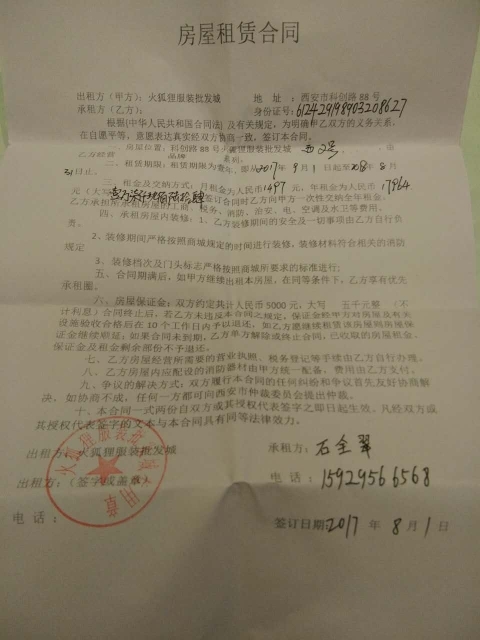 房屋租赁合同
出租方（甲方）：火狐狸服装批发城 地 址：西安市科创路88号
承租方（乙方）： 身份证号：
根据《中华人民共和国合同法》及有关规定，为明确甲乙双方的义务关系，
在自愿平等，意愿表达真实经双方协商一致，签订本合同。
一、房屋位置：科创路88号火狐狸服装批发城
乙方经营 品牌
二、租赁期限：租赁期限为壹年，即从2017年9月1日起至2018年8月
31日止。
三、租金及交纳方式：月租金为人民币1497元，年租金为人民币17964
元（大写 签订合同时乙方向甲方一次性交纳全年租金，
乙方承担所承租房屋的工商、税务、消防、治安、电、空调及水卫等费用。
四、承租房屋内装修：1、乙方装修期间的安全及一切事项由乙方自行负
责。
2、装修期间严格按照商城规定的时间进行装修。装修材料符合相关的消防
规定
3、装修档次及门头标志严格按照商城所要求的标准进行；
五、合同期满后，如甲方继续出租本房屋，在同等条件下，乙方享有优先
承租圈。
六、房屋保证金：双方约定共计人民币5000元，大写 五千元整 （不
计利息）合同终止后，若乙方未违反本合同之规定，保证金经甲方对房屋及有关
设施验收合格后在10个工作日内予以退还，如乙方愿继续租赁该房屋则房屋保
证金继续顺延；如果合同未到期，乙方单方解除或终止合同，已收取的房屋租金、
保证金及租金剩余部份不予退还。
七、乙方房屋经营所需要的营业执照，税务登记等手续由乙方自行办理。
八、乙方房屋内应配设的消防器材由甲方统一配备，费用由乙方支付。
九、争议的解决方式：双方履行本合同的任何纠纷和争议首先友好协商解
决，如协商不成，任何一方都可向西安市仲裁委员会提出仲裁。
十、本合同一式两份自双方或其授权代表签字之即日起生效。凡经双方或
其授权代表签字的文本与本合同具有同等法律效力。
出租方：火狐狸服装批发城 承租方：石全翠
出租方：（签字或盖章） 电 话：15929566568
电 话： 签订日期：2017年8月1日